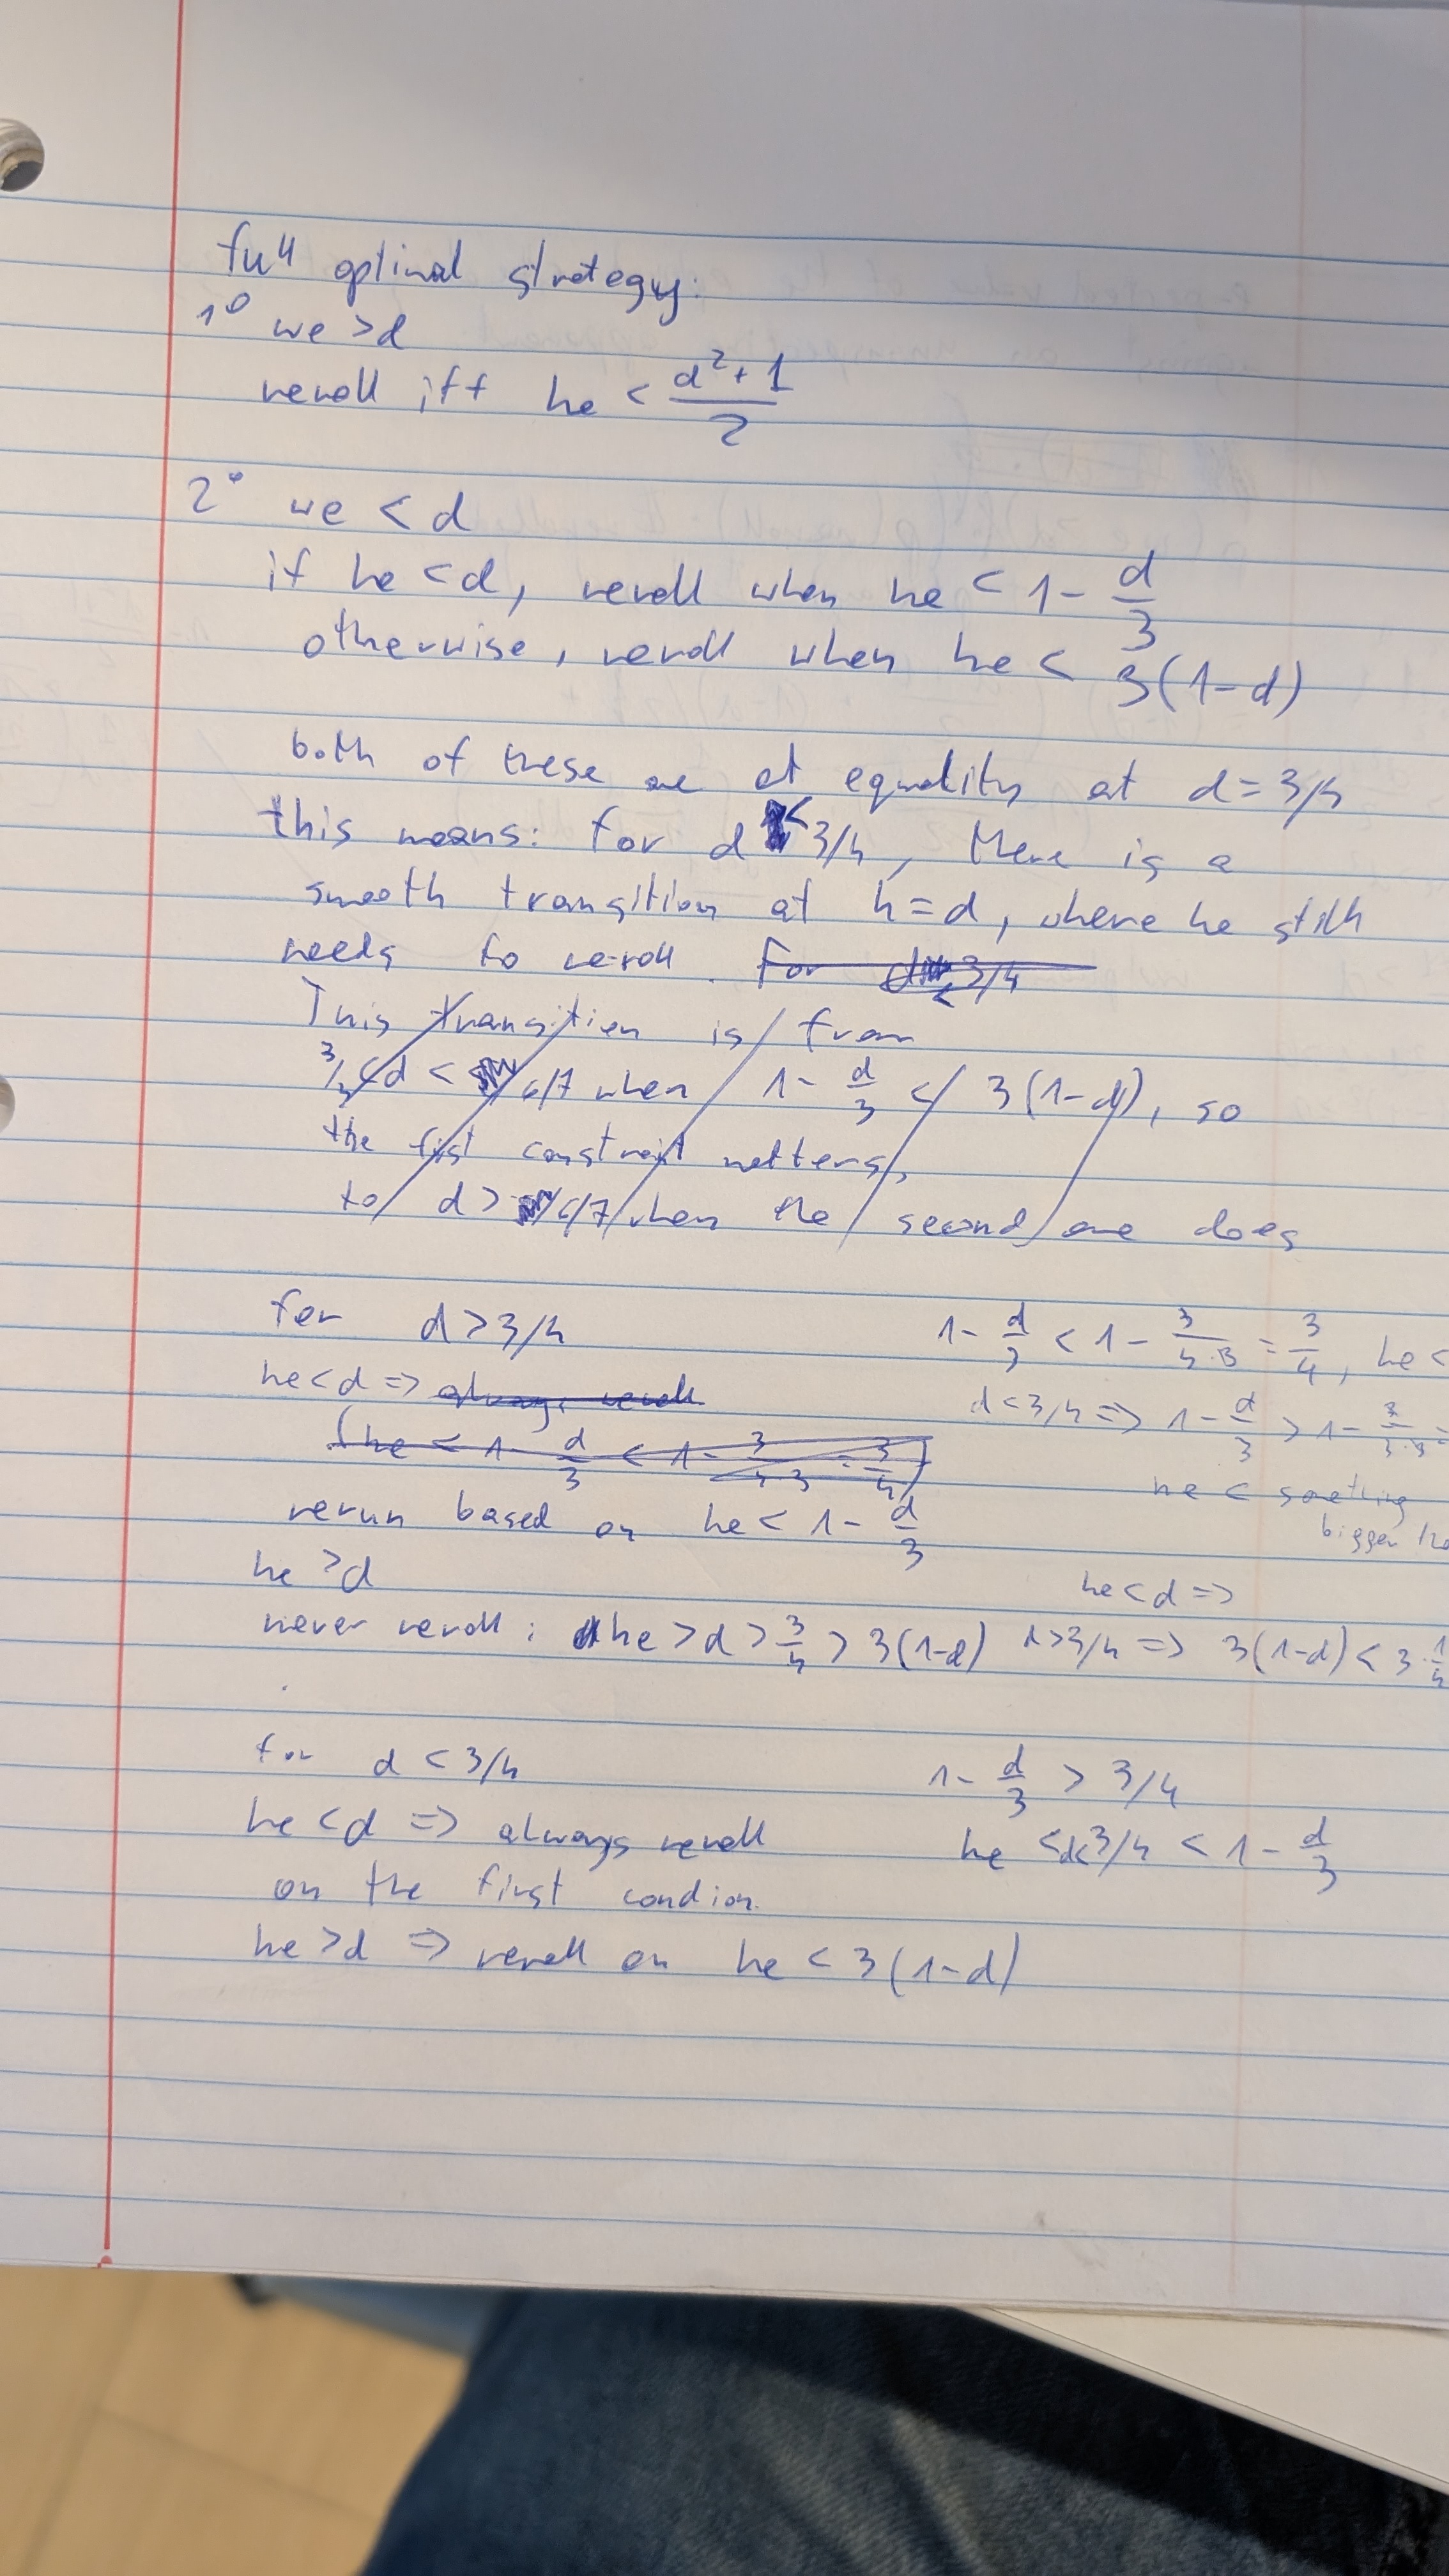 full optimal strategy:
1⁰ we >d
reroll iff he < (d²+1)/2
2° we < d
if he <d, reroll when he < 1 - d/3
otherwise, reroll when he < 3(1-d)
both of these are at equality at d = 3/4
this means: for d < 3/4, there is a
smooth transition at h=d, where he still
needs to re-roll. For d < 3/4
This transition is from
d < 6/7 when 1 - d/3 < 3(1-d), so
the first constraint matters,
to d > 6/7 when the second one does
for d > 3/4
1 - d/3 < 1 - 3/(4·3) = 3/4, he <
he < d => always reroll
d < 3/4 => 1 - d/3 > 1 - 3/(4·3) =
(he < 1 - d/3 < 1 - 3/(4·3) = 3/4)
he < something
bigger
rerun based on he < 1 - d/3
he >d
he < d =>
never reroll: he > d > 3/4 > 3(1-d)
d > 3/4 => 3(1-d) < 3·1/4
for d < 3/4
1 - d/3 > 3/4
he < d => always reroll
he < d < 3/4 < 1 - d/3
on the first condion.
he > d => reroll on he < 3(1-d)